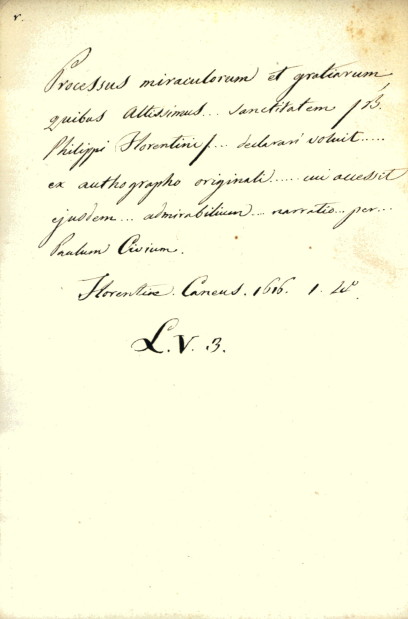 r.
Processus miraculorum et gratiarum
quibus Altissimus... sanctitatem
Philippi Florentini... declarari voluit.....
ex authographo originali..... cui accessit
ejusdem... admirabilium... narratio... per...
Paulum Civium.
Florentiæ. Caneus. 1616. 1. 4º
L. V. 3.